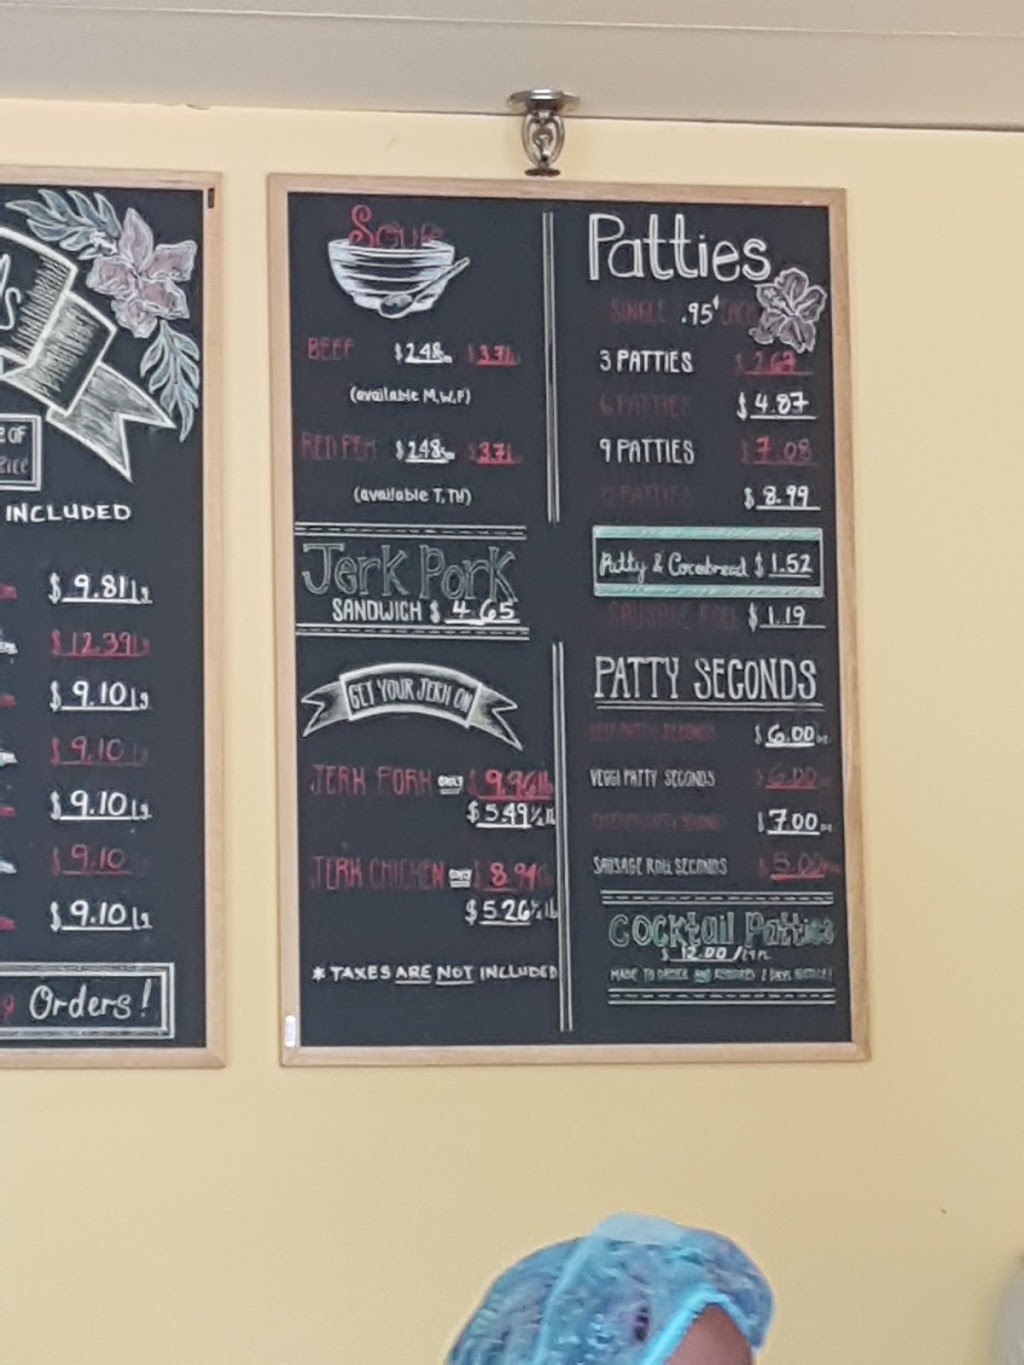 E OF
INCLUDED
$ 9.81 lg
$ 12.39 lg
$ 9.10 lg
$ 9.10
$ 9.10 lg
$ 9.10
$ 9.10 lg
Orders!
Soup
BEEF $2.48 sm $3.71 lg
(available M,W,F)
RED PEA $2.48 sm $3.71 lg
(available T,TH)
Jerk Pork
SANDWICH $ 4.65
GET YOUR JERK ON
JERK PORK ONLY $9.96 lb
$5.49 ½ lb
JERK CHICKEN ONLY $ 8.94
$5.26 ½ lb
* TAXES ARE NOT INCLUDED
Patties
SINGLE .95¢ EACH
3 PATTIES $ 2.67
6 PATTIES $ 4.87
9 PATTIES $ 7.08
12 PATTIES $ 8.99
Patty & Cocobread $ 1.52
SAUSAGE ROLL $ 1.19
PATTY SECONDS
BEEF PATTY SECONDS $ 6.00
VEGGI PATTY SECONDS $ 6.00
CHICKEN PATTY SECONDS $ 7.00
SAUSAGE ROLL SECONDS $ 5.00
Cocktail Patties
$ 12.00
MADE TO ORDER AND REQUIRES 2 DAYS NOTICE!